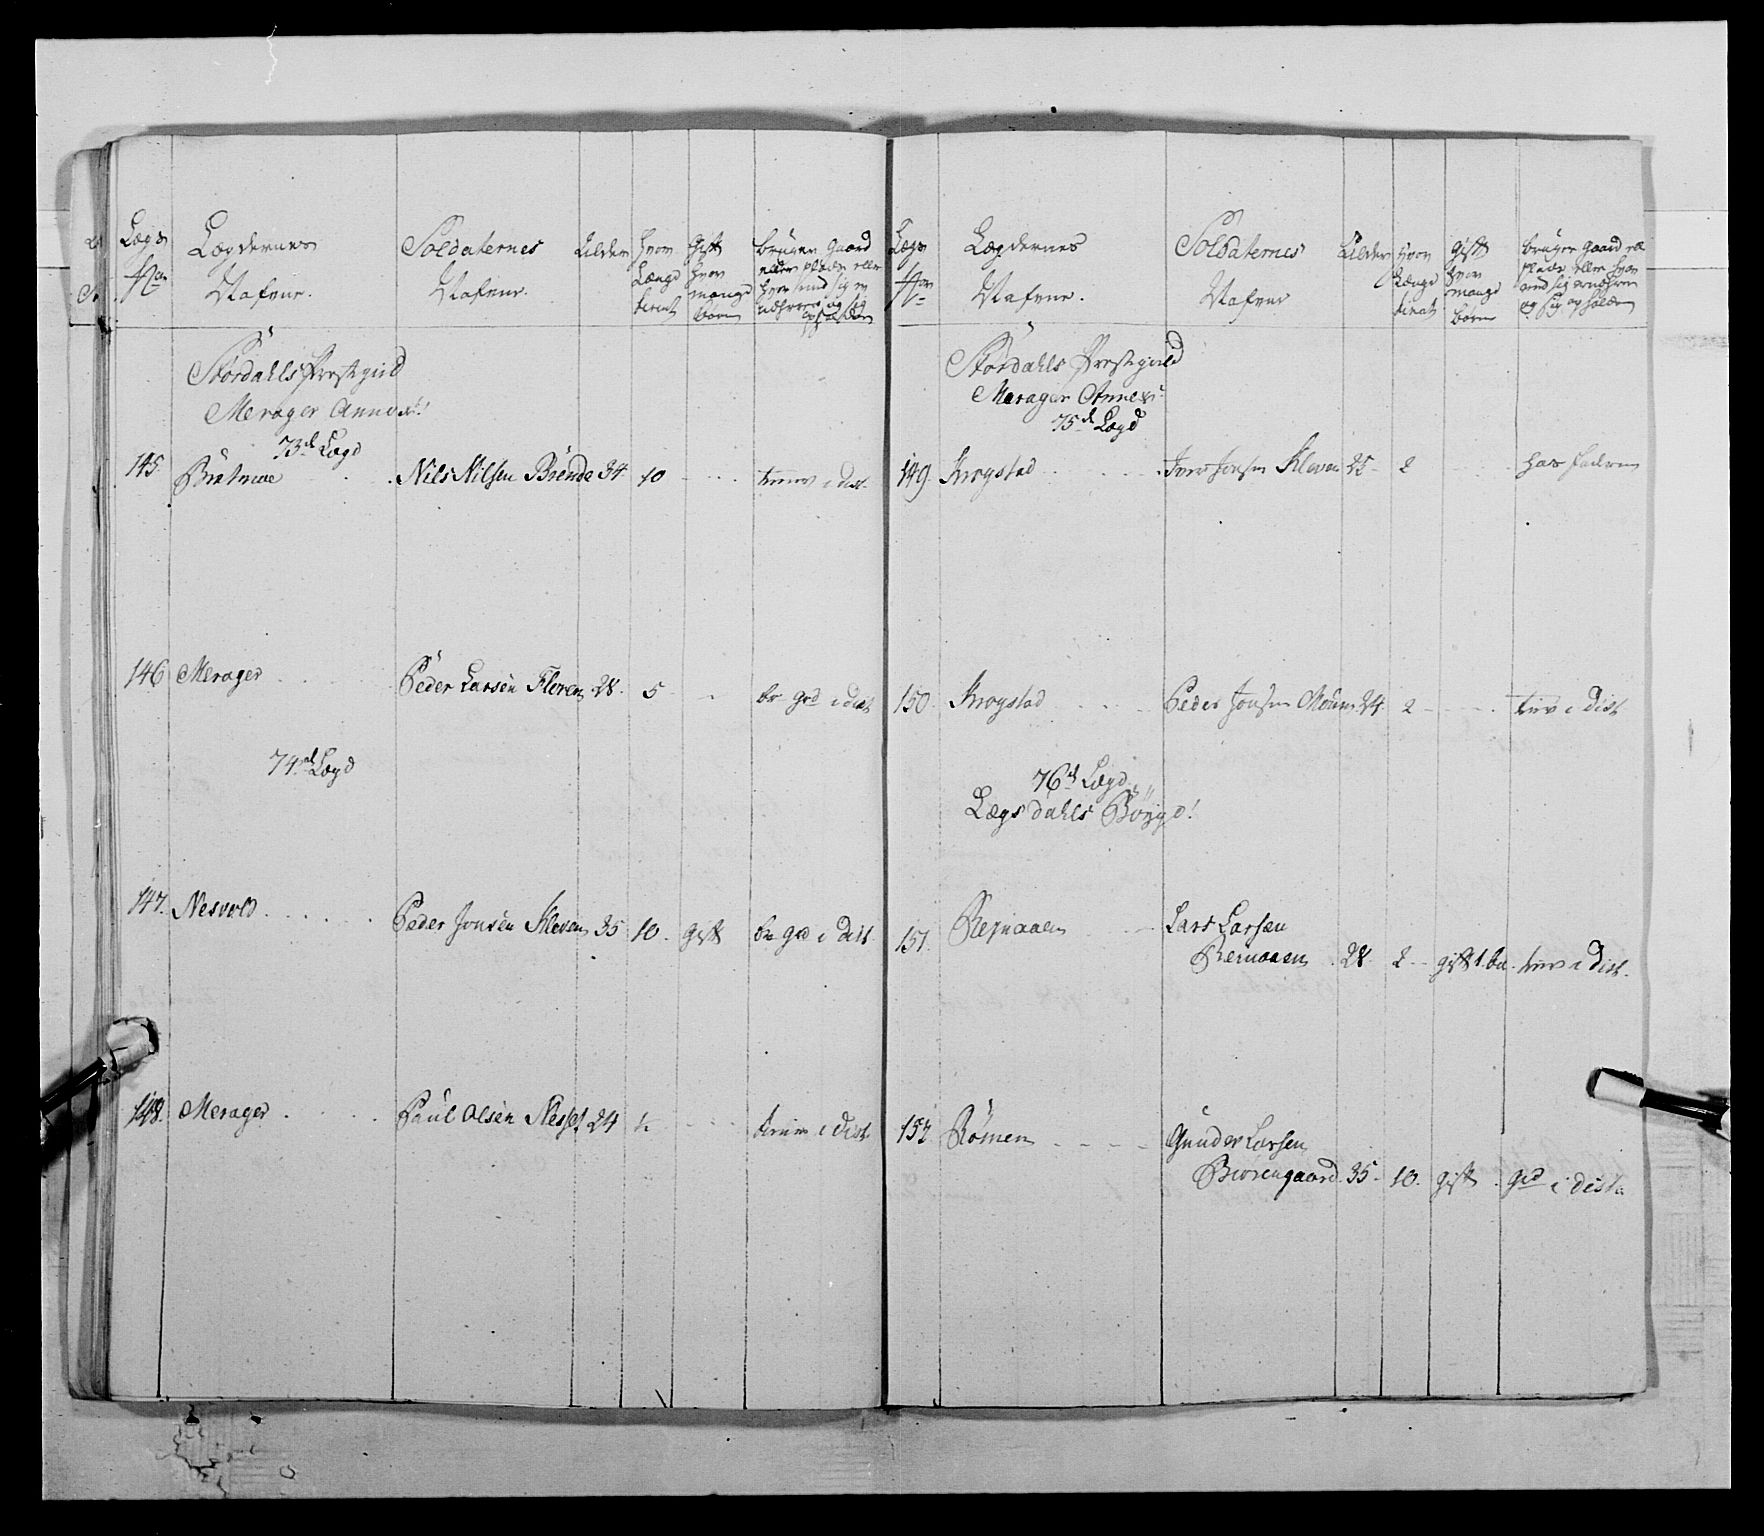 Lægs No
Lægdernes Nafne.
Soldaternes Nafne.
Alder
hvor Længe tient
Gift hvor mange børn
bruger Gaard eller pladz eller hvor med sig
Stördahls Præstegield
Merager Annex!
73de Lægd
145. Nils Nilsen Brende 34 10 - - - tiener i dist.
146 Merager - - - Peder Larsen Fleren 28. 5 - - br grd i dist
74de Lægd
147. Nesvold - - - - - Peder Jonsen Kleven 35 10. gift br grd i dist
148. Merager - - - Paul Olsen Nesset 24 - - - tiener i dist.
Lægs No
Lægdernes Nafne.
Soldaternes Nafne
Alder
hvor Længe tient
gift hvor mange børn
bruger gaard el pladz eller hvor med sig ernærer og sig opholder
Stördahls Prestegield
Merager Annex:
75de Lægd
149. Krogstad - - - Iver Jonsen Kleven 25 - 2 - hos faderen
150. Krogstad - - - Peder Jonsen Moum 24. 2 - - - - tien i dist
76de Lægd
Lægsdahls Böygd!
151. - - Lars Larsen
28 2 - gift 1. bn. tien i dist.
152 Rømen - - - - Gunder Larsen
Biørengaard 35 - 10. gift. grd i dist.